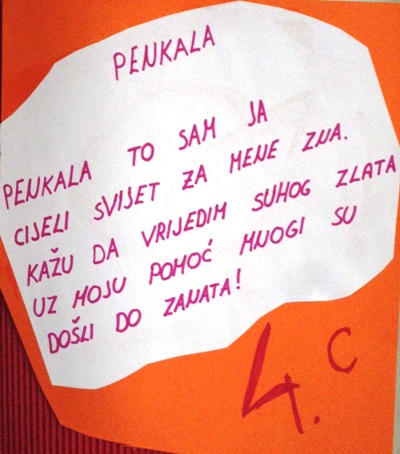 PENKALA
PENKALA TO SAM JA
CIJELI SVIJET ZA MENE ZNA.
KAŽU DA VRIJEDIM SUHOG ZLATA
UZ MOJU POMOĆ MNOGI SU
DOŠLI DO ZANATA!
4.c